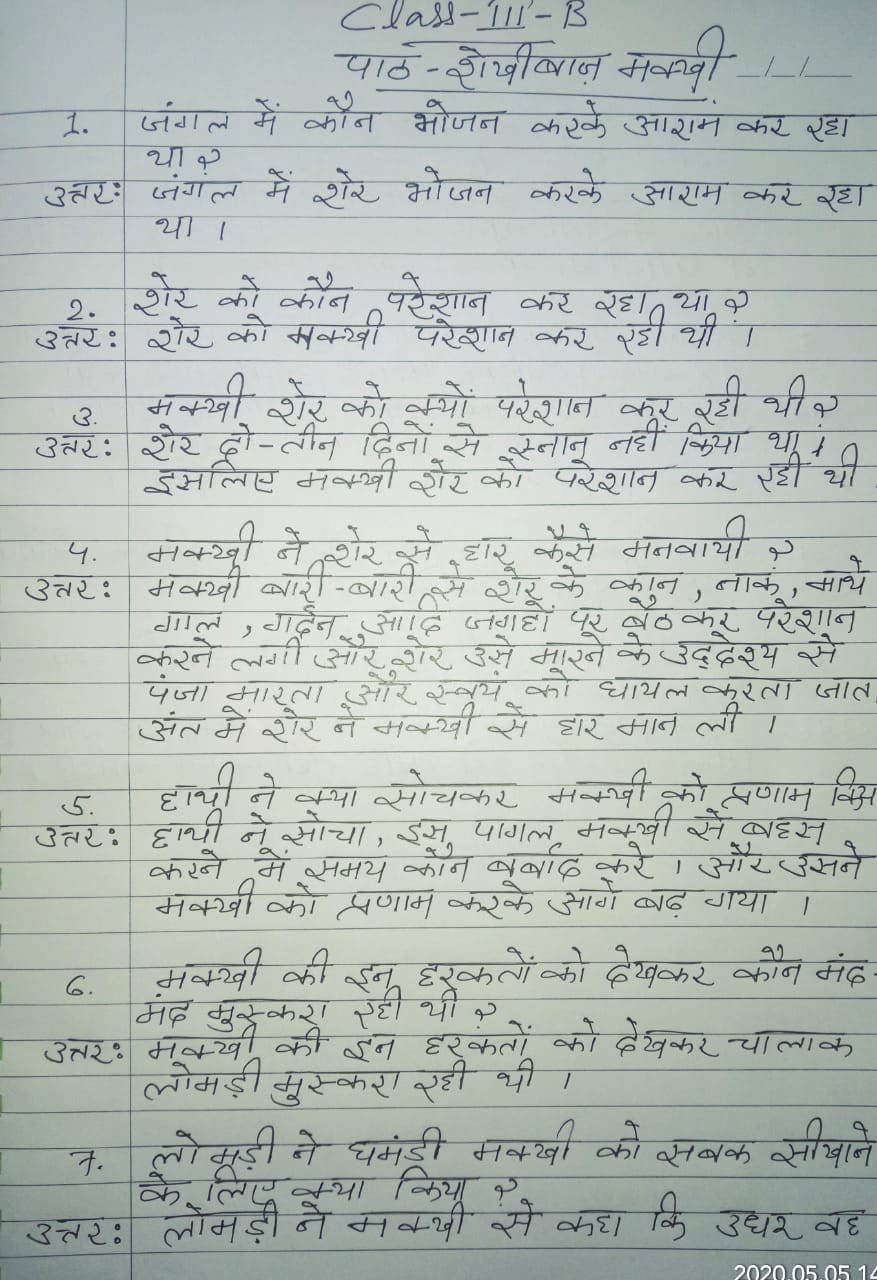 Class-III-B
पाठ - शेखीबाज़ मक्खी
1. जंगल में कौन भोजन करके आराम कर रहा
था ?
उत्तर: जंगल में शेर भोजन करके आराम कर रहा
था ।
2. शेर को कौन परेशान कर रहा था ?
उत्तर: शेर को मक्खी परेशान कर रही थी ।
3. मक्खी शेर को क्यों परेशान कर रही थी ?
उत्तर: शेर दो-तीन दिनों से स्नान नहीं किया था ।
इसलिए मक्खी शेर को परेशान कर रही थी
4. मक्खी ने शेर से हार कैसे मनवायी ?
उत्तर: मक्खी बारी-बारी से शेर के कान, नाक, माथे
गाल, गर्दन आदि जगहों पर बैठ कर परेशान
करने लगी और शेर उसे मारने के उद्देश्य से
पंजा मारता और स्वयं को घायल करता जात
अंत में शेर ने मक्खी से हार मान ली ।
5. हाथी ने क्या सोचकर मक्खी को प्रणाम किया
उत्तर: हाथी ने सोचा, इस पागल मक्खी से बहस
करने में समय कौन बर्बाद करे । और उसने
मक्खी को प्रणाम करके आगे बढ़ गया ।
6. मक्खी की इन हरकतों को देखकर कौन मंद-
मंद मुस्करा रही थी ?
उत्तर: मक्खी की इन हरकतों को देखकर चालाक
लोमड़ी मुस्करा रही थी ।
7. लोमड़ी ने घमंडी मक्खी को सबक सीखाने
के लिए क्या किया ?
उत्तर: लोमड़ी ने मक्खी से कहा कि उधर वह
2020.05.05 14